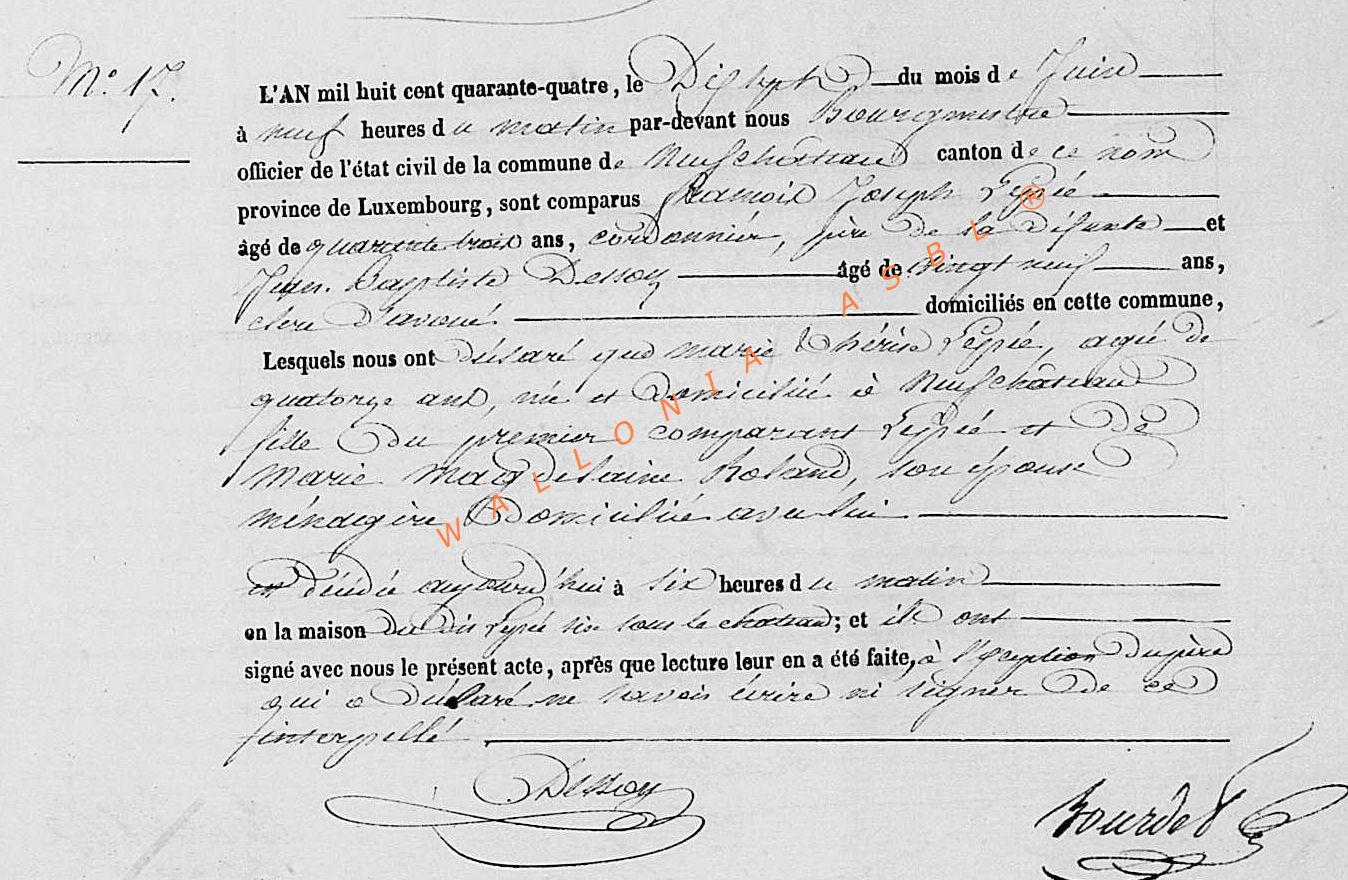 N° 17.
L'AN mil huit cent quarante-quatre, le Dix sept du mois de Juin
à neuf heures du matin par-devant nous Bourgmestre
officier de l'état civil de la commune de Neufchâteau canton de ce nom
province de Luxembourg, sont comparus François Joseph Lepée
âgé de quarante trois ans, cordonnier, père de la défunte et
Jean Baptiste Dessoy âgé de vingt neuf ans,
clerc d'avoué domiciliés en cette commune,
Lesquels nous ont déclaré que marie thérèse Lepée, agée de
quatorze ans, née et domiciliée à Neufchâteau
fille du premier comparant Lepée et de
Marie Magdelaine Roland, son épouse
ménagère domiciliée avec lui
est décédée aujourd'hui à six heures du matin
en la maison du dit Lepée sise sous le château; et ils ont
signé avec nous le présent acte, après que lecture leur en a été faite, à l'exception du père
qui a déclaré ne savoir écrire ni signer de ce
interpellé
Dessoy
Bourdet
WALLONIA ASBL ®